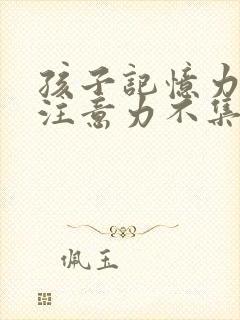 孩子記憶力
注意力不集
佩玉